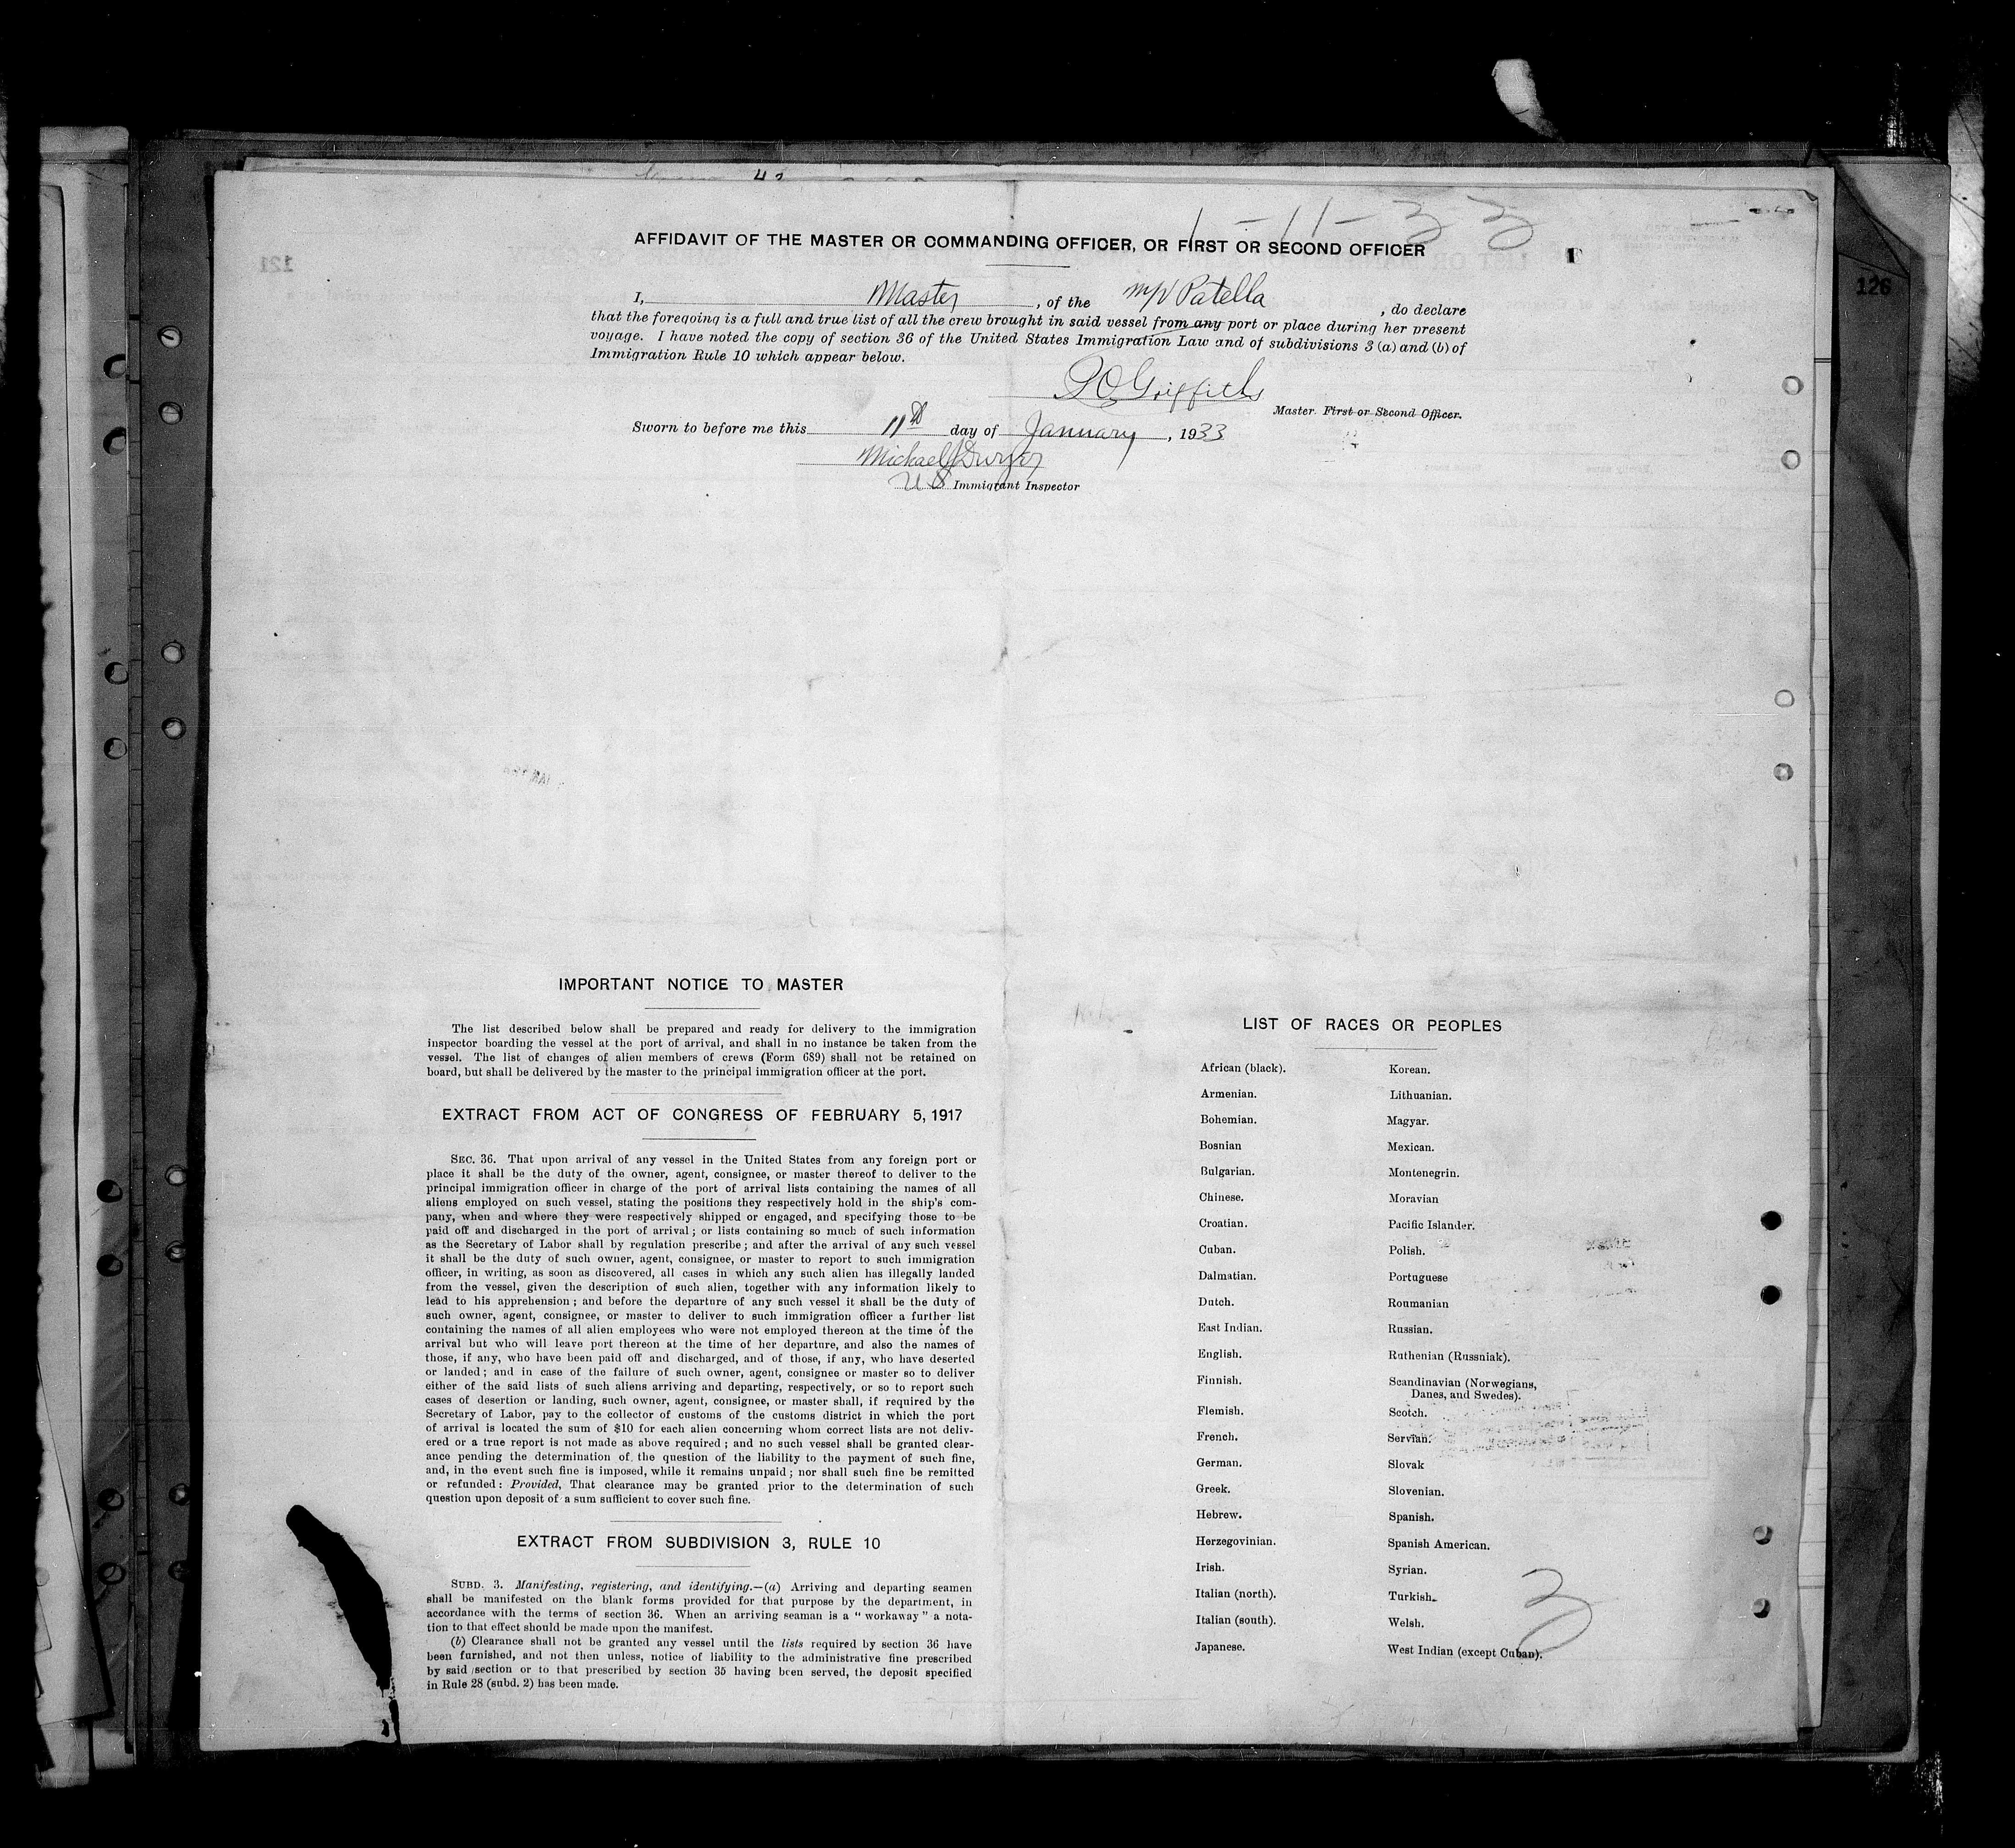 1-11-33
AFFIDAVIT OF THE MASTER OR COMMANDING OFFICER, OR FIRST OR SECOND OFFICER
121
126
I, Master, of the M/V Patella, do declare
that the foregoing is a full and true list of all the crew brought in said vessel from any port or place during her present
voyage. I have noted the copy of section 36 of the United States Immigration Law and of subdivisions 3 (a) and (b) of
Immigration Rule 10 which appear below.
Griffiths
Master First or Second Officer.
Sworn to before me this 11th day of January, 1933
Michael J Dwyer
US Immigrant Inspector
IMPORTANT NOTICE TO MASTER
The list described below shall be prepared and ready for delivery to the immigration
inspector boarding the vessel at the port of arrival, and shall in no instance be taken from the
vessel. The list of changes of alien members of crews (Form 689) shall not be retained on
board, but shall be delivered by the master to the principal immigration officer at the port.
EXTRACT FROM ACT OF CONGRESS OF FEBRUARY 5, 1917
SEC. 36. That upon arrival of any vessel in the United States from any foreign port or
place it shall be the duty of the owner, agent, consignee, or master thereof to deliver to the
principal immigration officer in charge of the port of arrival lists containing the names of all
aliens employed on such vessel, stating the positions they respectively hold in the ship's com-
pany, when and where they were respectively shipped or engaged, and specifying those to be
paid off and discharged in the port of arrival; or lists containing so much of such information
as the Secretary of Labor shall by regulation prescribe; and after the arrival of any such vessel
it shall be the duty of such owner, agent, consignee, or master to report to such immigration
officer, in writing, as soon as discovered, all cases in which any such alien has illegally landed
from the vessel, given the description of such alien, together with any information likely to
lead to his apprehension; and before the departure of any such vessel it shall be the duty of
such owner, agent, consignee, or master to deliver to such immigration officer a further list
containing the names of all alien employees who were not employed thereon at the time of the
arrival but who will leave port thereon at the time of her departure, and also the names of
those, if any, who have been paid off and discharged, and of those, if any, who have deserted
or landed; and in case of the failure of such owner, agent, consignee or master so to deliver
either of the said lists of such aliens arriving and departing, respectively, or so to report such
cases of desertion or landing, such owner, agent, consignee, or master shall, if required by the
Secretary of Labor, pay to the collector of customs of the customs district in which the port
of arrival is located the sum of $10 for each alien concerning whom correct lists are not deliv-
ered or a true report is not made as above required; and no such vessel shall be granted clear-
ance pending the determination of the question of the liability to the payment of such fine,
and, in the event such fine is imposed, while it remains unpaid; nor shall such fine be remitted
or refunded: Provided, That clearance may be granted prior to the determination of such
question upon deposit of a sum sufficient to cover such fine.
EXTRACT FROM SUBDIVISION 3, RULE 10
SUBD. 3. Manifesting, registering, and identifying.—(a) Arriving and departing seamen
shall be manifested on the blank forms provided for that purpose by the department, in
accordance with the terms of section 36. When an arriving seaman is a "workaway" a nota-
tion to that effect should be made upon the manifest.
(b) Clearance shall not be granted any vessel until the lists required by section 36 have
been furnished, and not then unless, notice of liability to the administrative fine prescribed
by said section or to that prescribed by section 35 having been served, the deposit specified
in Rule 28 (subd. 2) has been made.
LIST OF RACES OR PEOPLES
African (black).
Armenian.
Bohemian.
Bosnian
Bulgarian.
Chinese.
Croatian.
Cuban.
Dalmatian.
Dutch.
East Indian.
English.
Finnish.
Flemish.
French.
German.
Greek.
Hebrew.
Herzegovinian.
Irish.
Italian (north).
Italian (south).
Japanese.
Korean.
Lithuanian.
Magyar.
Mexican.
Montenegrin.
Moravian
Pacific Islander.
Polish.
Portuguese
Roumanian
Russian.
Ruthenian (Russniak).
Scandinavian (Norwegians,
Danes, and Swedes).
Scotch.
Servian.
Slovak
Slovenian.
Spanish.
Spanish American.
Syrian.
Turkish.
Welsh.
West Indian (except Cuban).
3